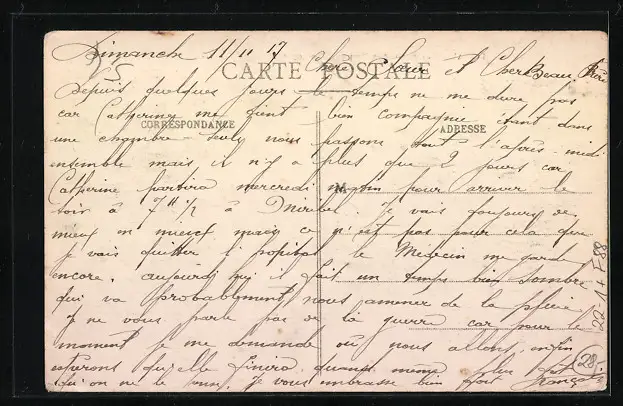 Dimanche 11/11 17
CARTE POSTALE
Chère Sœur et Cher Beau Frère
Depuis quelques jours le temps ne me dure pas
car Catherine me tient bien compagnie étant dans
CORRESPONDANCE
ADRESSE
une chambre seuls nous passons tout l'après-midi
ensemble mais il n'y a plus que 2 jours car
Catherine partira mercredi matin pour arriver le
M
soir à 7 H 1/2 à Miribel. Je vais toujours de
mieux en mieux mais ce n'est pas pour cela que
je vais quitter l'hopital le Médecin me garde
encore. aujourd'hui il fait un temps bien sombre
qui va probablement nous amener de la pluie.
Je ne vous parle pas de la guerre car pour le
moment je me demande où nous allons, enfin
esperons qu'elle finira quand même plus
qu'on ne le Je vous embrasse bien fort
28